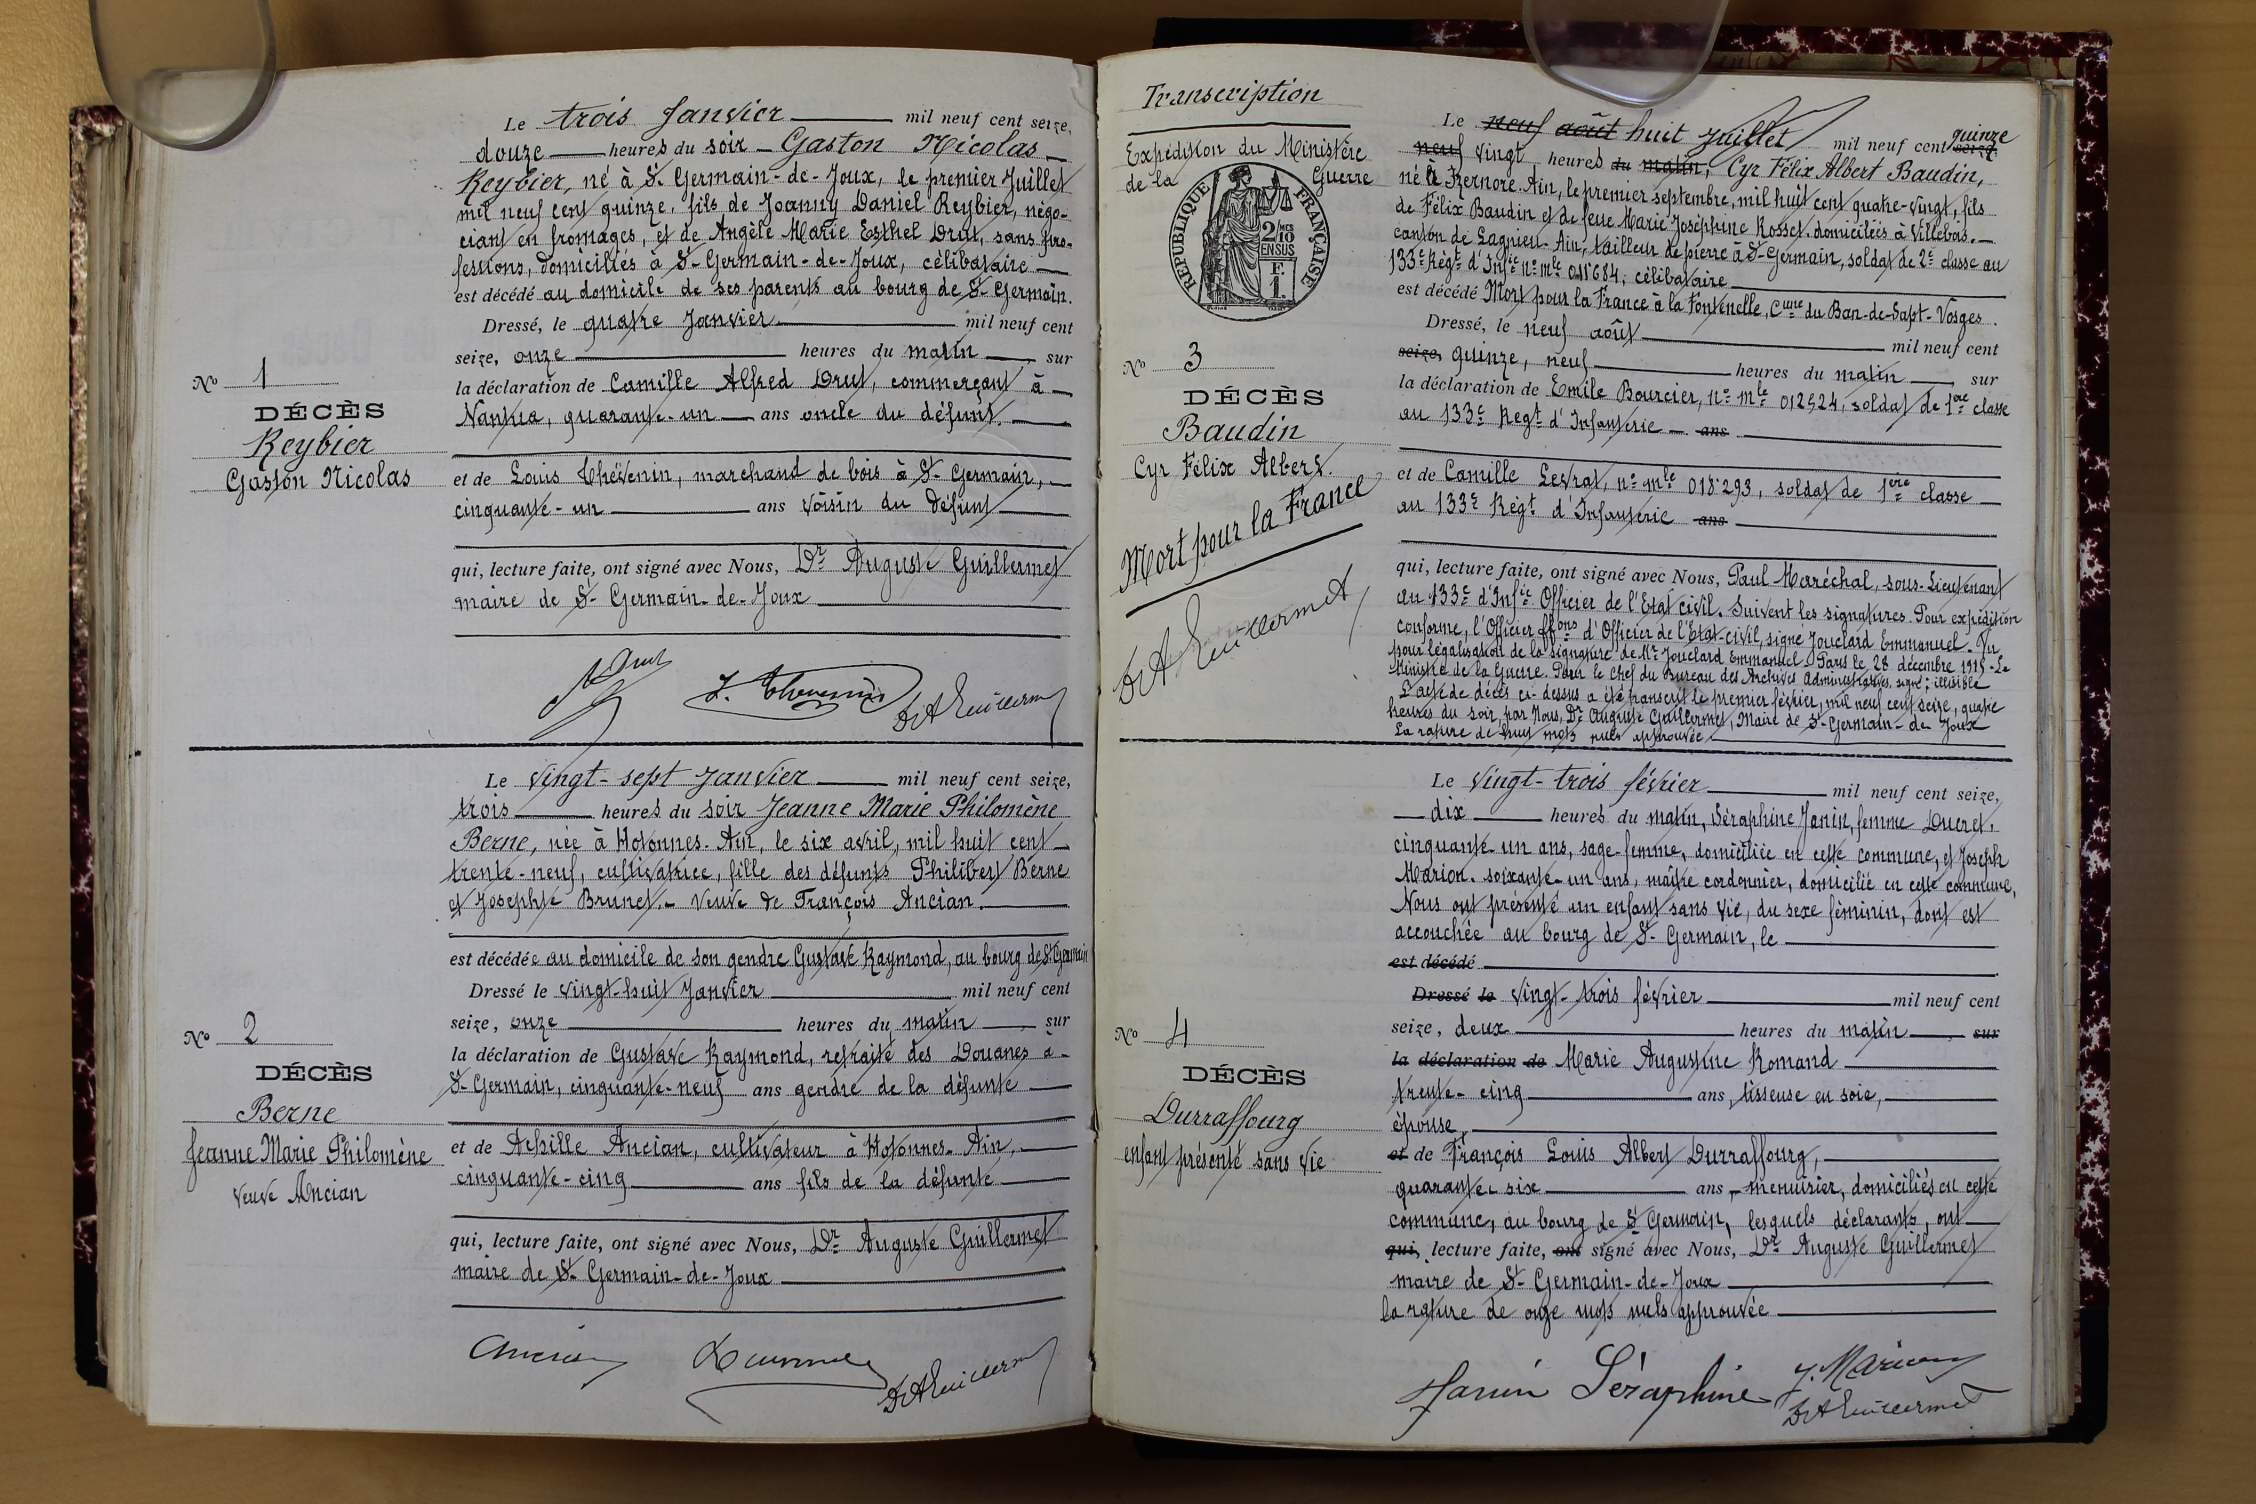 Le trois Janvier mil neuf cent seize,
douze heures du soir - Gaston Nicolas
Reybier, né à St. Germain-de-Joux, le premier Juillet
mil neuf cent quinze, fils de Joanny Daniel Reybier, négo-
ciant en fromages, et de Angèle Marie Esthel Drut, sans pro-
fessions, domiciliés à St-Germain-de-Joux, célibataire
est décédé au domicile de ses parents au bourg de St-Germain.
Dressé, le quatre Janvier mil neuf cent
seize, onze heures du matin sur
No 1
la déclaration de Camille Alfred Drut, commerçant à
Nantua, quarante-un ans oncle du défunt.
DÉCÈS
Reybier
Gaston Nicolas
et de Louis Thévenin, marchand de bois à St-Germain,
cinquante-un ans voisin du défunt
qui, lecture faite, ont signé avec Nous, Dr Auguste Guillermet
maire de St-Germain-de-Joux
A Drut
J. Thevenin
Dr A Guillermet
Le vingt-sept Janvier mil neuf cent seize,
trois heures du soir Jeanne Marie Philomène
Berne, née à Hotonnes-Ain, le six avril, mil huit cent
trente-neuf, cultivatrice, fille des défunts Philibert Berne
et Josephte Brunet.- Veuve de François Ancian.
est décédée au domicile de son gendre Gustave Raymond, au bourg de St Germain
Dressé le vingt-huit Janvier mil neuf cent
seize, onze heures du matin sur
No 2
la déclaration de Gustave Raymond, retraité des Douanes à
St-Germain, cinquante-neuf ans gendre de la défunte
DÉCÈS
Berne
Jeanne Marie Philomène
Veuve Ancian
et de Achille Ancian, cultivateur à Hotonnes-Ain,
cinquante-cinq ans fils de la défunte
qui, lecture faite, ont signé avec Nous, Dr Auguste Guillermet
maire de St-Germain-de-Joux
Ancian
Dr A Guillermet
Transcription
Expédition du Ministère
de la Guerre
RÉPUBLIQUE FRANÇAISE
2/10 MES
EN SUS
F.
1.
Le neuf août huit Juillet mil neuf cent seize quinze
neuf vingt heures du matin, Cyr Félix Albert Baudin,
né à Izernore. Ain, le premier septembre, mil huit cent quatre-vingt, fils
de Félix Baudin et de feue Marie Joséphine Rosset. domiciliés à Villebois.
canton de Lagnieu-Ain, tailleur de pierre à St-Germain, soldat de 2e classe au
133e Régt d'Infie no mle 011684; célibataire
est décédé Mort pour la France à la Fontenelle, Cune du Ban-de-Sapt-Vosges.
Dressé, le neuf août mil neuf cent
seize, quinze, neuf heures du matin sur
No 3
la déclaration de Emile Bourcier, no mle 012524, soldat de 1ere classe
au 133e Regt d'Infanterie ans
DÉCÈS
Baudin
Cyr Félix Albert.
Mort pour la France
Dr A Guillermet
et de Camille Levrat, no mle 018293, soldat de 1ere classe
au 133e Régt d'Infanterie ans
qui, lecture faite, ont signé avec Nous, Paul Maréchal, sous-Lieutenant
au 133e d'Infie Officier de l'Etat civil. Suivent les signatures. Pour expédition
conforme, l'Officier ffons d'Officier de l'Etat-civil, signé Jouclard Emmanuel. Vu
pour légalisation de la signature de Mr Jouclard Emmanuel - Paris le 28 décembre 1915 - Le
Ministre de la Guerre. Pour le Chef du Bureau des Archives Administratives, signé: illisible
L'acte de décès ci-dessus a été transcrit le premier février, mil neuf cent seize, quatre
heures du soir, par Nous, Dr Auguste Guillermet, Maire de St-Germain-de Joux
La rature de huit mots nuls approuvée
Le Vingt-trois février mil neuf cent seize,
dix heures du matin, Séraphine Janin, femme Ducret,
cinquante-un ans, sage-femme, domiciliée en cette commune, et Joseph
Marion. soixante-un ans, maître cordonnier, domicilié en cette commune,
Nous ont présenté un enfant sans vie, du sexe féminin, dont est
accouchée au bourg de St-Germain, le
est décédé
Dressé le vingt-trois février mil neuf cent
seize, deux heures du matin sur
No 4
la déclaration de Marie Augustine Romand
trente-cinq ans, tisseuse en soie,
DÉCÈS
Durraffourg
enfant présenté sans vie
épouse,
et de François Louis Albert Durraffourg,
quarante-six ans, menuisier, domiciliés en cette
commune, au bourg de St Germain, lesquels déclarants, ont
qui, lecture faite, ont signé avec Nous, Dr Auguste Guillermet
maire de St-Germain-de-Joux
la rature de onze mots nuls approuvée
Janin Séraphine
J. Marion
Dr A Guillermet